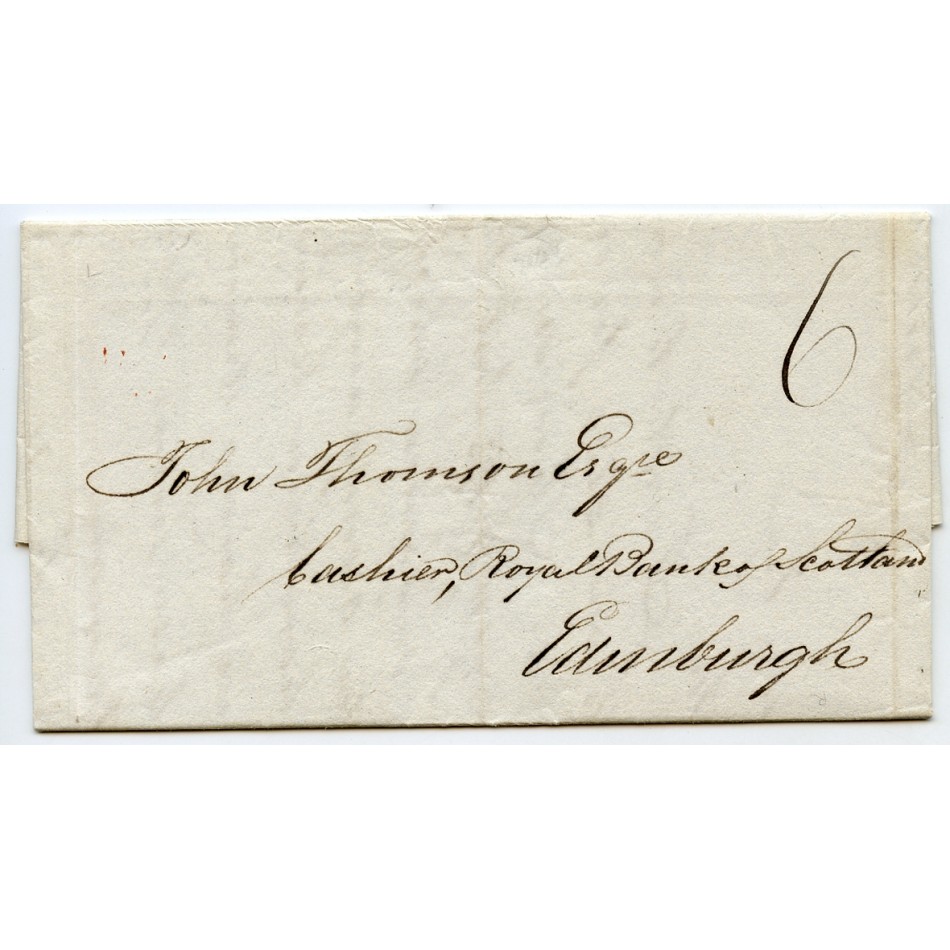 6
John Thomson Esqre
Cashier, Royal Bank of Scotland
Edinburgh